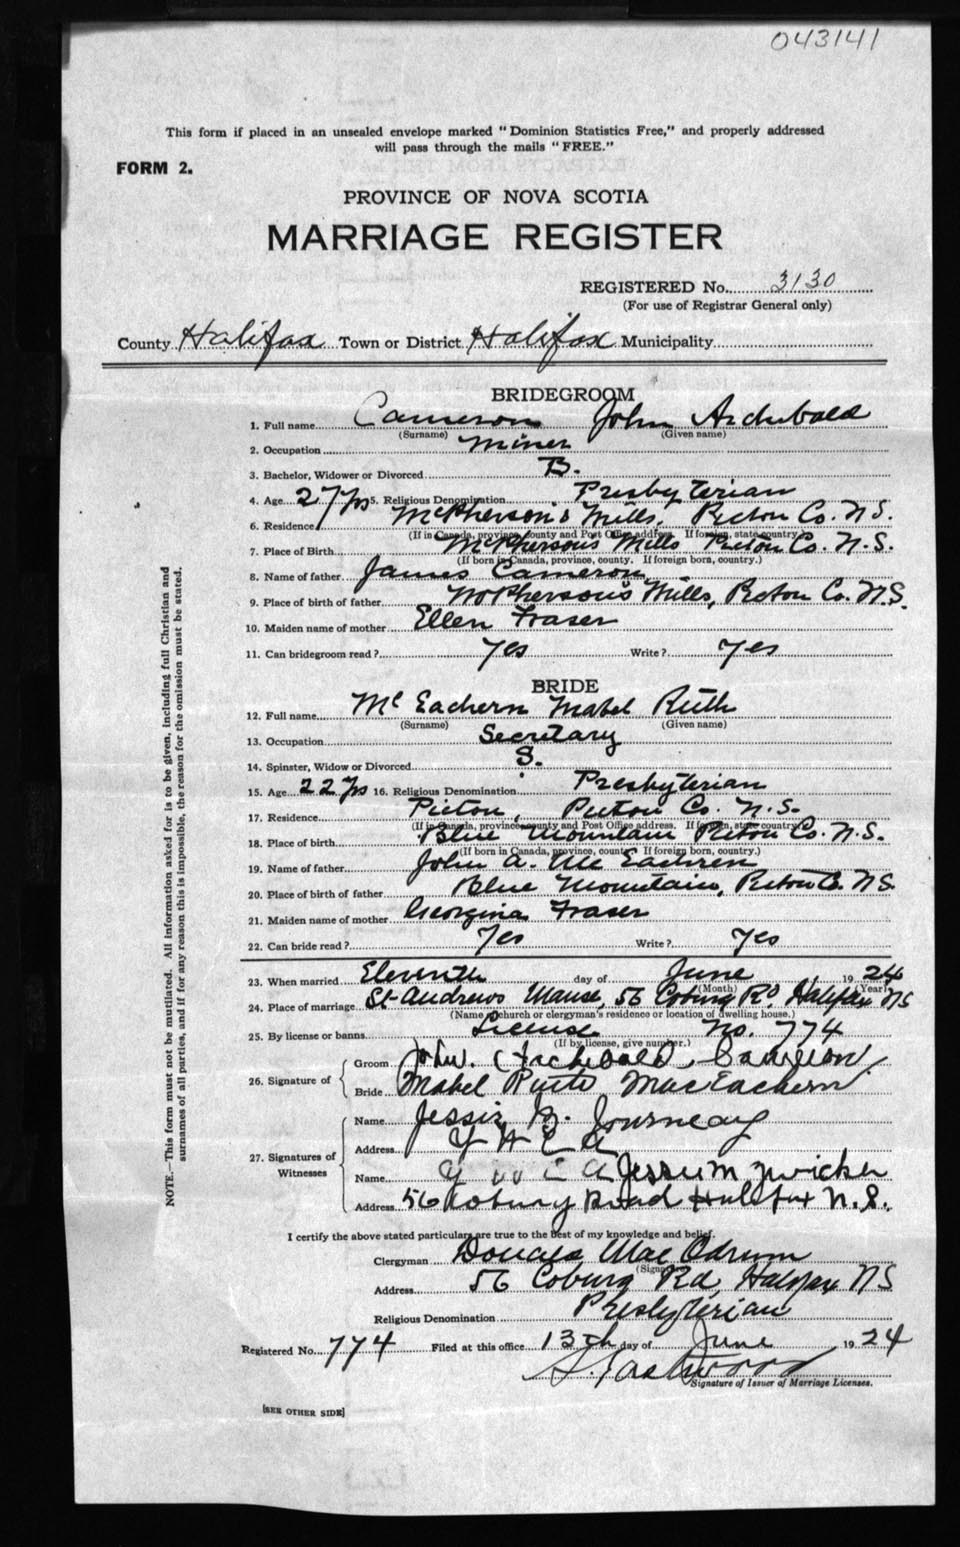 043141
This form if placed in an unsealed envelope marked "Dominion Statistics Free," and properly addressed
will pass through the mails "FREE."
FORM 2.
PROVINCE OF NOVA SCOTIA
MARRIAGE REGISTER
REGISTERED No. 3130
(For use of Registrar General only)
County Halifax Town or District Halifax Municipality
BRIDEGROOM
1. Full name Cameron John Archibald
(Surname) (Given name)
2. Occupation Miner
3. Bachelor, Widower or Divorced B.
4. Age 27 yrs 5. Religious Denomination Presbyterian
6. Residence McPherson's Mills, Pictou Co. N.S.
(If in Canada, province, county and Post Office address. If foreign, state country.)
7. Place of Birth McPhersons Mills Pictou Co. N.S.
(If born in Canada, province, county. If foreign born, country.)
8. Name of father James Cameron
9. Place of birth of father McPherson's Mills, Pictou Co. N.S.
10. Maiden name of mother Ellen Fraser
11. Can bridegroom read? Yes Write? Yes
BRIDE
12. Full name McEachern Mabel Ruth
(Surname) (Given name)
13. Occupation Secretary
14. Spinster, Widow or Divorced S.
15. Age 22 yrs 16. Religious Denomination Presbyterian
17. Residence Pictou, Pictou Co. N.S.
(If in Canada, province, county and Post Office address. If foreign, state country.)
18. Place of birth Blue Mountain Pictou Co. N.S.
(If born in Canada, province, county. If foreign born, country.)
19. Name of father John A. McEachren
20. Place of birth of father Blue Mountain, Pictou Co. N.S.
21. Maiden name of mother Georgina Fraser
22. Can bride read? Yes Write? Yes
23. When married Eleventh day of June 1924
(Month) (Year)
24. Place of marriage St Andrews Manse, 56 Coburg Rd Halifax NS
(Name church or clergyman's residence or location of dwelling house.)
25. By license or banns License No. 774
(If by license, give number.)
26. Signature of
Groom John Archibald Cameron
Bride Mabel Ruth MacEachern
27. Signatures of Witnesses
Name Jessie B. Journeay
Address Y W C A
Name Y W C A Jessie M Zwicker
Address 56 Coburg Road Halifax N.S.
I certify the above stated particulars are true to the best of my knowledge and belief.
Clergyman Donald Mac Odrum
(Signature)
Address 56 Coburg Rd, Halifax NS
Religious Denomination Presbyterian
Registered No. 774 Filed at this office 13th day of June 1924
Signature of Issuer of Marriage Licenses.
[SEE OTHER SIDE]
NOTE.—This form must not be mutilated. All information asked for is to be given, including full Christian and
surnames of all parties, and if for any reason this is impossible, the reason for the omission must be stated.